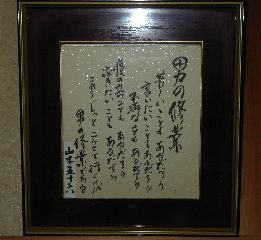 男の修業
苦しいこともあるだろう
言いたいこともあるだろう
不満なこともあるだろう
腹の立つこともあるだろう
泣きたいこともあるだろう
これらをじっとこらえて行くのが
男の修業である
山本五十六